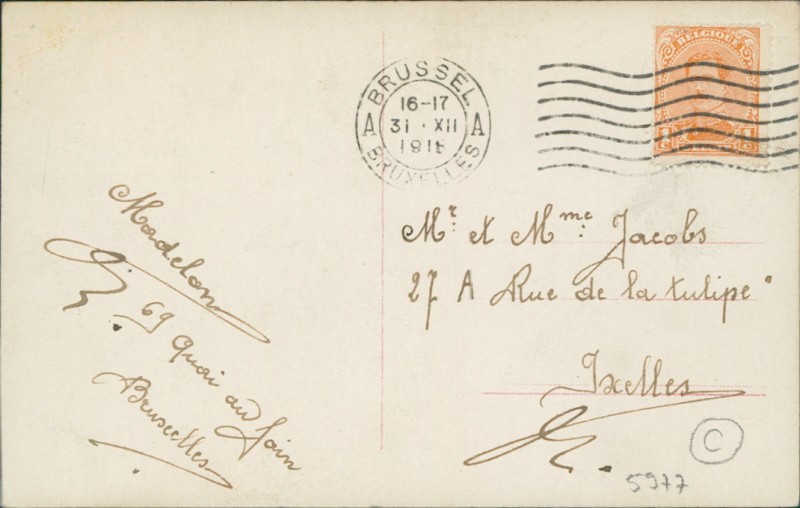 BELGIQUE
1c 1c
BRUSSEL
16-17
A 31·XII A
BRUXELLES
Mr. et Mme. Jacobs
27 A Rue de la tulipe
Ixelles
Madelon
69 Quai au foin
Bruxelles
C
5977